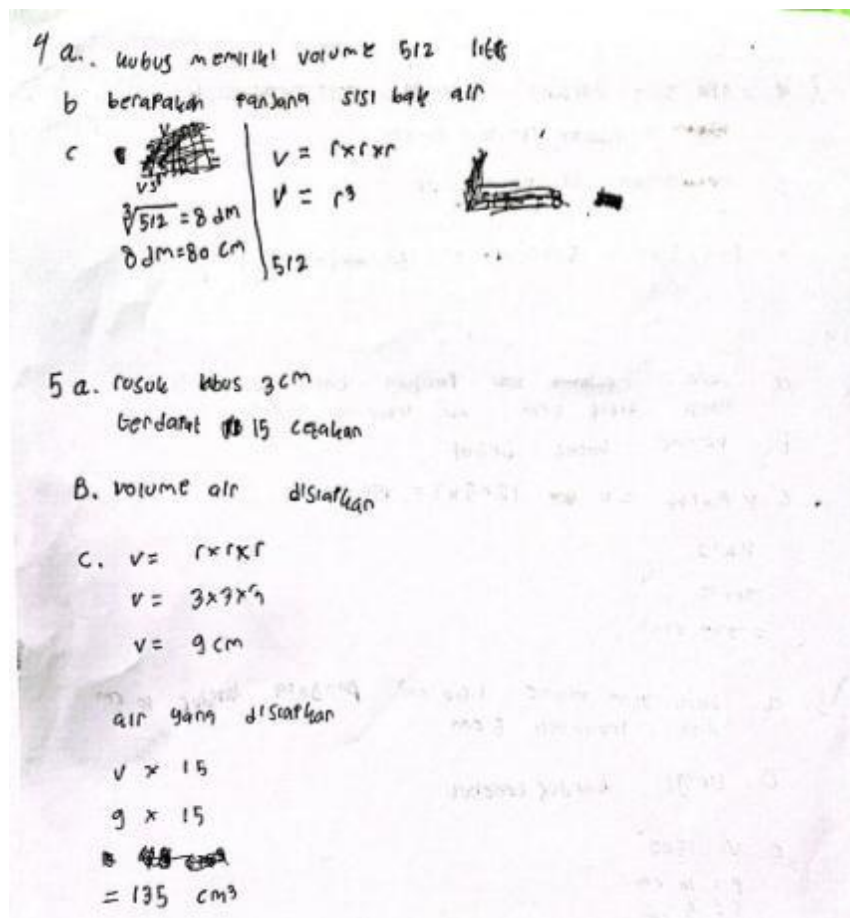 4 a. kubus memiliki volume 512 liter
b berapakah panjang sisi bak air
c
V = r x r x r
∛512 = 8 dm
V = r³
8 dm = 80 cm
512
5 a. rusuk kubus 3 cm
terdapat 15 cetakan
B. volume air disiapkan
C. v = r x r x r
v = 3 x 3 x 3
v = 9 cm
air yang disiapkan
v x 15
9 x 15
= 135 cm³